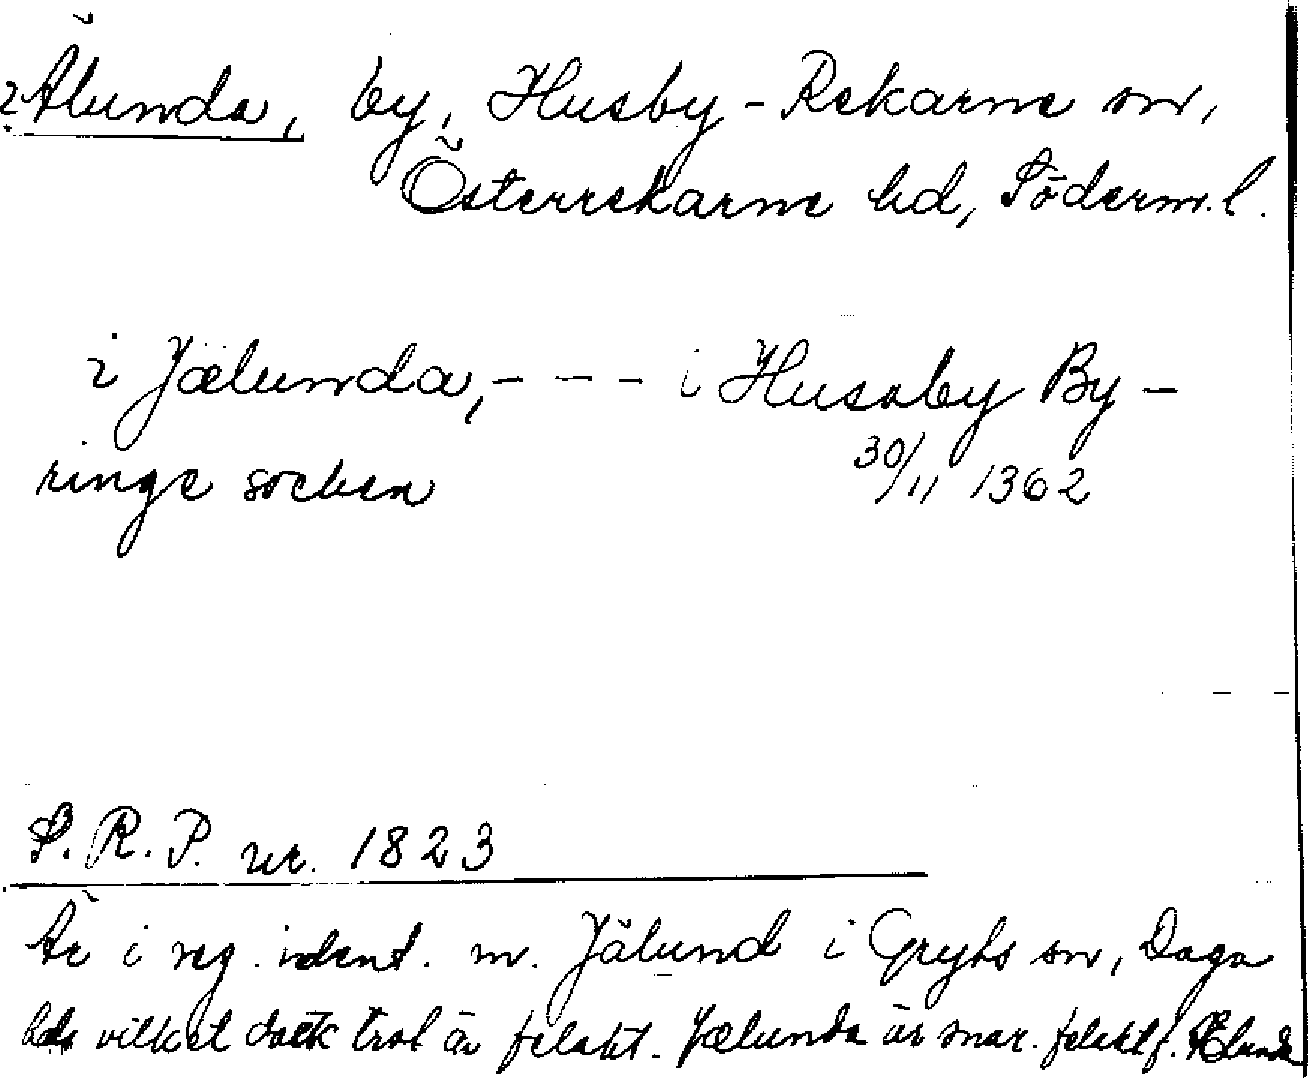 Älunda, by, Husby-Rekarne sn,
Österrekarne hd, Söderm.l.
i Jælunda,- - - - i Husaby By-
ringe socken 30/11 1362
S.R.P. nr. 1823
Är i reg. ident. m. Jälund i Gryts sn, Daga
hds vilket dock trol är felakt. Jælunda är snar. felakt f. Ælunda